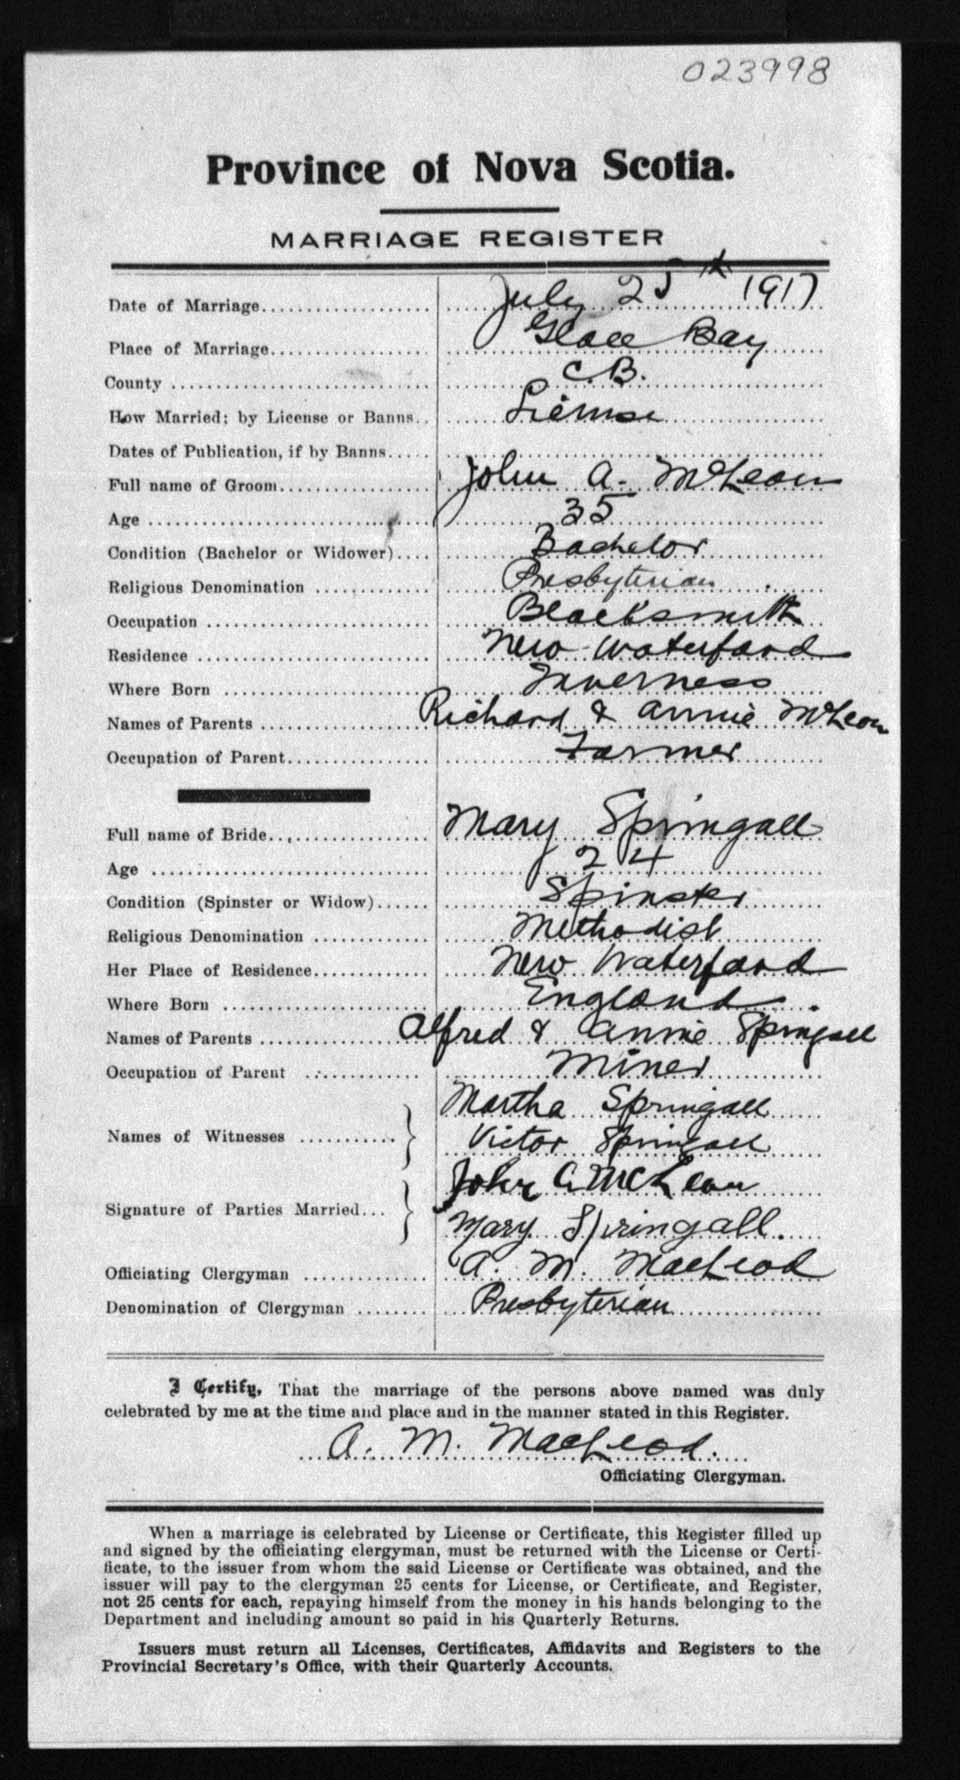 023998
Province of Nova Scotia.
MARRIAGE REGISTER
Date of Marriage July 25th 1917
Place of Marriage Glace Bay
County C.B.
How Married; by License or Banns License
Dates of Publication, if by Banns
Full name of Groom John A. McLean
Age 35
Condition (Bachelor or Widower) Bachelor
Religious Denomination Presbyterian
Occupation Blacksmith
Residence New Waterford
Where Born Inverness
Names of Parents Richard & Annie McLean
Occupation of Parent Farmer
Full name of Bride Mary Springall
Age 24
Condition (Spinster or Widow) Spinster
Religious Denomination Methodist
Her Place of Residence New Waterford
Where Born England
Names of Parents Alfred & Annie Springall
Occupation of Parent Miner
Martha Springall
Names of Witnesses Victor Springall
John A McLean
Signature of Parties Married Mary Springall.
Officiating Clergyman A. M. MacLeod
Denomination of Clergyman Presbyterian
I Certify, That the marriage of the persons above named was duly
celebrated by me at the time and place and in the manner stated in this Register.
A. M. MacLeod.
Officiating Clergyman.
When a marriage is celebrated by License or Certificate, this Register filled up
and signed by the officiating clergyman, must be returned with the License or Certi-
ficate, to the issuer from whom the said License or Certificate was obtained, and the
issuer will pay to the clergyman 25 cents for License, or Certificate, and Register,
not 25 cents for each, repaying himself from the money in his hands belonging to the
Department and including amount so paid in his Quarterly Returns.
Issuers must return all Licenses, Certificates, Affidavits and Registers to the
Provincial Secretary's Office, with their Quarterly Accounts.